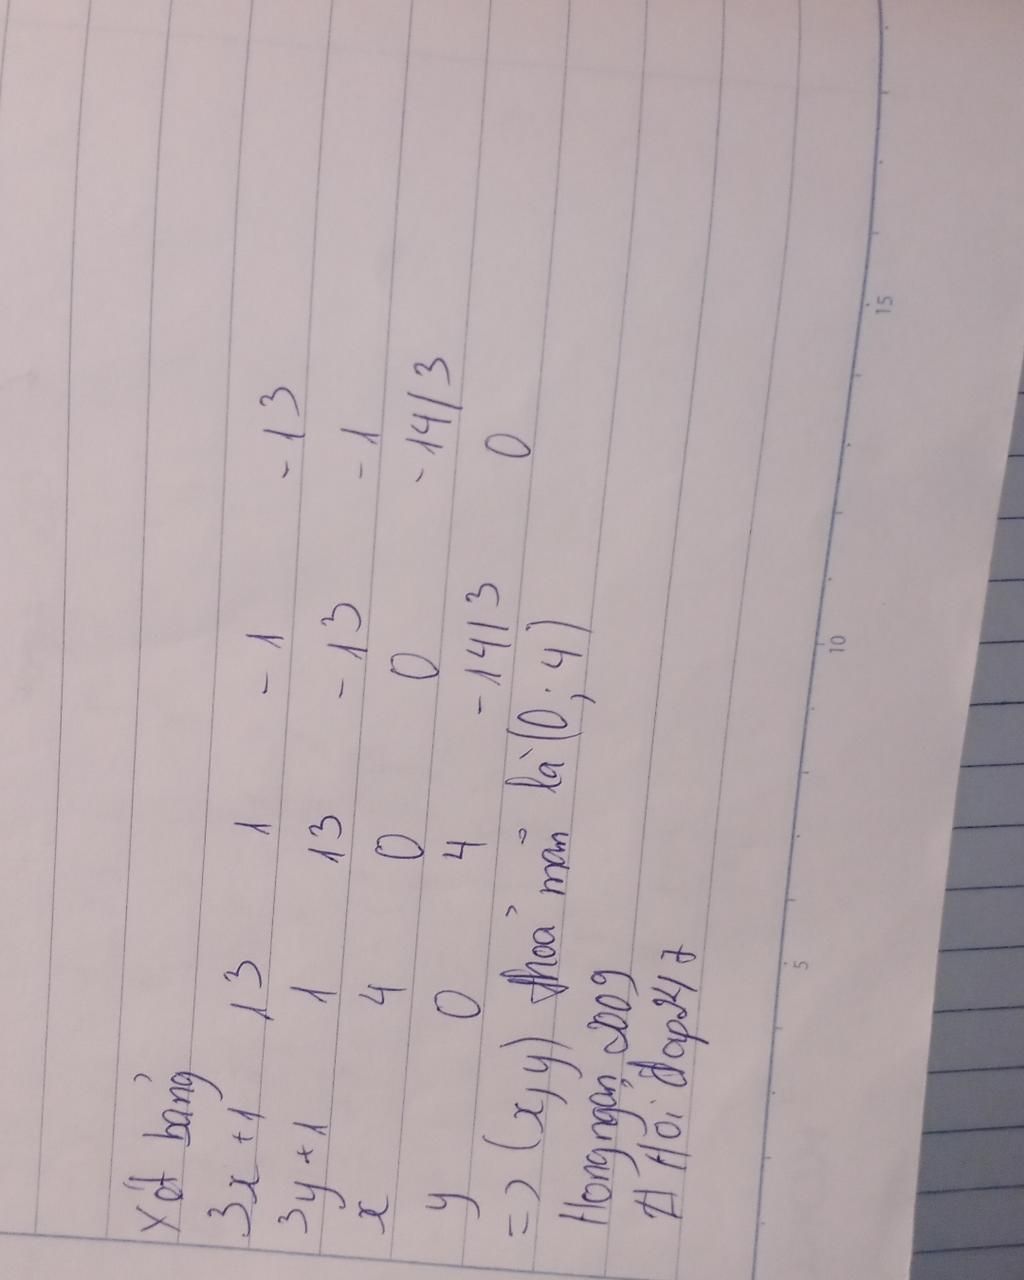 Xét bảng
3x+1 13 1 -1 -13
3y+1 1 13 -13 -1
x 4 0 0 -14/3
y 0 4 -14/3 0
=) (x,y) thoả mãn là (0,4)
Hongngan2009
Hỏi đáp247
5 10 15